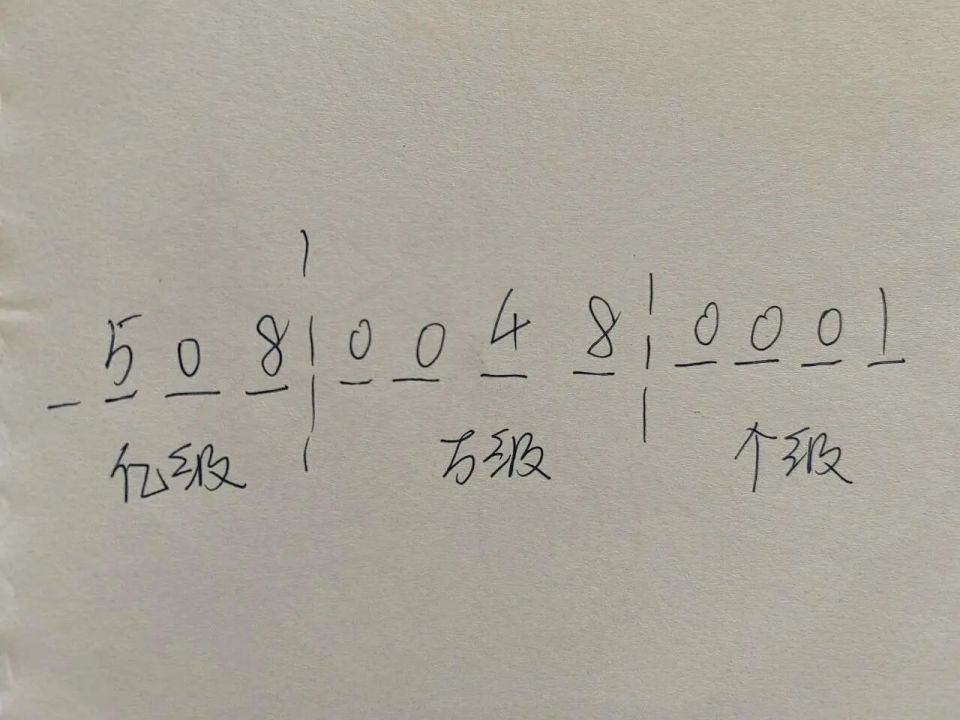 508 0048 0001
亿级 万级 个级